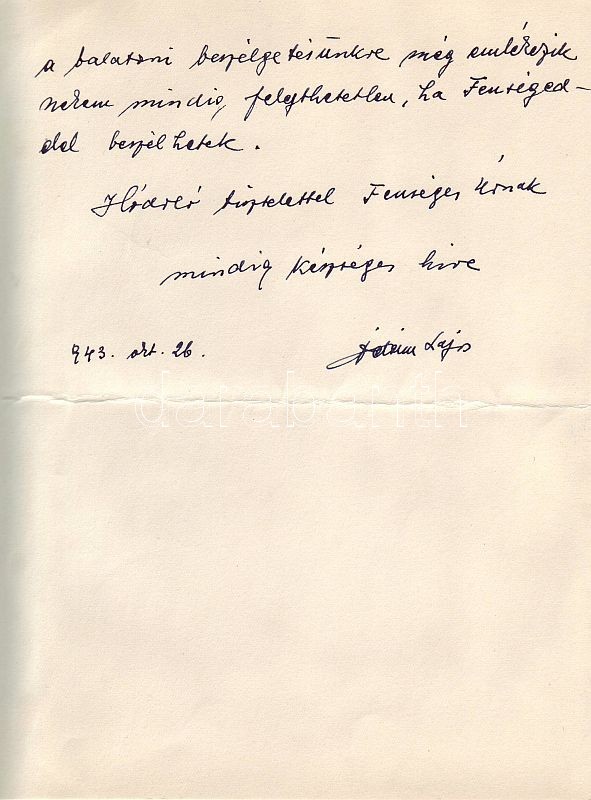 a balatoni beszélgetésünkre még emlékezik
nekem mindig felejthetetlen, ha Fenséged-
del beszélhetek.
Hódoló tisztelettel Fenséges Úrnak
mindig készséges híve
943. okt. 26. Ádám Lajos
darabanth